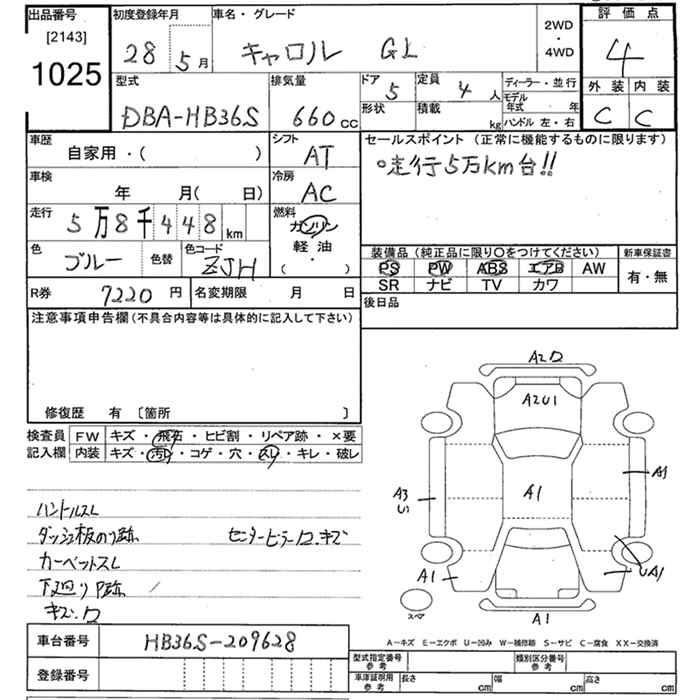 出品番号 初度登録年月 車名・グレード 評価点
[2143] 2WD
1025 28 5月 キャロル GL ・ 4
4WD
型式 排気量 ドア 5 定員 4人 ディーラー・並行 外装 内装
DBA-HB36S 660cc 形状 積載 kg モデル年式 年 C C
ハンドル 左・右
車歴 シフト セールスポイント(正常に機能するものに限ります)
自家用・( ) AT ○走行5万km台!!
車検 冷房
年 月( 日) AC
走行 5万8千448km 燃料
ガソリン
色 ブルー 色替 色コード ZJH 軽油 装備品(純正品に限り○をつけてください) 新車保証書
・
( ) PS PW ABS エアB AW 有・無
R券 7220円 名変期限 月 日 SR ナビ TV カワ
注意事項申告欄(不具合内容等は具体的に記入して下さい) 後日品
修復歴 有 [箇所 ]
検査員 FW キズ・飛石・ヒビ割・リペア跡・×要
記入欄 内装 キズ・汚レ・コゲ・穴・スレ・キレ・破レ
A2
A2U1
A1
A3
A1
A1
UA1
A1
スペア
ハンドルスレ
ダッシュ板のり跡 センターピラー キズ
カーペットスレ
下廻りP跡
キズ
A-キズ E-エクボ U-凹み W-補修跡 S-サビ C-腐食 XX-交換済
車台番号 HB36S-209628
登録番号
型式指定番号 参考 類別区分番号 参考
車庫証明用 参考 長さ cm 幅 cm 高さ cm